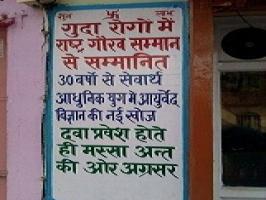 शुभ 卐 लाभ
गुदा रोगों में
राष्ट्र गौरव सम्मान
से सम्मानित
30 वर्षो से सेवार्थ
आधुनिक युग में आयुर्वेद
विज्ञान की नई खोज
दवा प्रवेश होते
ही मस्सा अन्त
की ओर अग्रसर